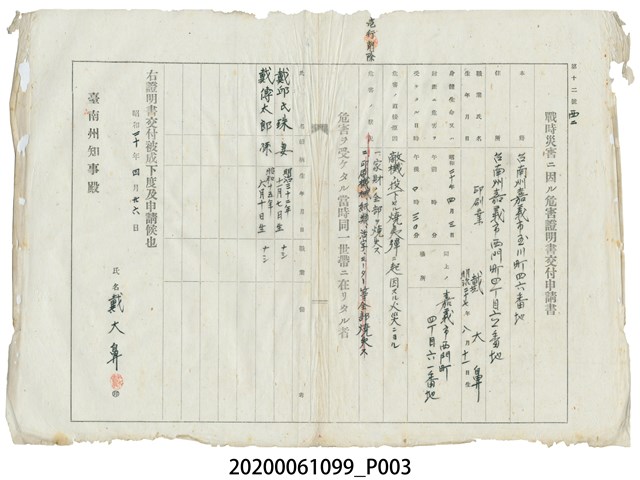 第十二號
戰時災害ニ因ル危害證明書交付申請書
本籍 台南州嘉義市玉川町四六番地
住所 台南州嘉義市西門町四丁目六二番地
職業氏名 印刷業 戴大鼻
生年月日 明治二十七年八月十一日生
昭和四十年四月三日
午後0時三0分
以上ノ場所 嘉義市西門町四丁目六一番地
敵機ノ投下セル燒夷彈ニ起因スル火災ニヨル
一、家財ノ全部ヲ燒失ス
二、印刷機械、紙類、活字、モーター等全部燒失ス
壱行削除
危害ヲ受ケタル當時同一世帶ニ在リタル者
戴邱氏珠 妻 明治三十二年十一月七日生 ナシ
戴傳太郎 孫 昭和十五年六月十日生 ナシ
右證明書交付被成下度及申請候也
昭和二十年四月廿六日
氏名 戴大鼻 ㊞
臺南州知事殿
20200061099_P003